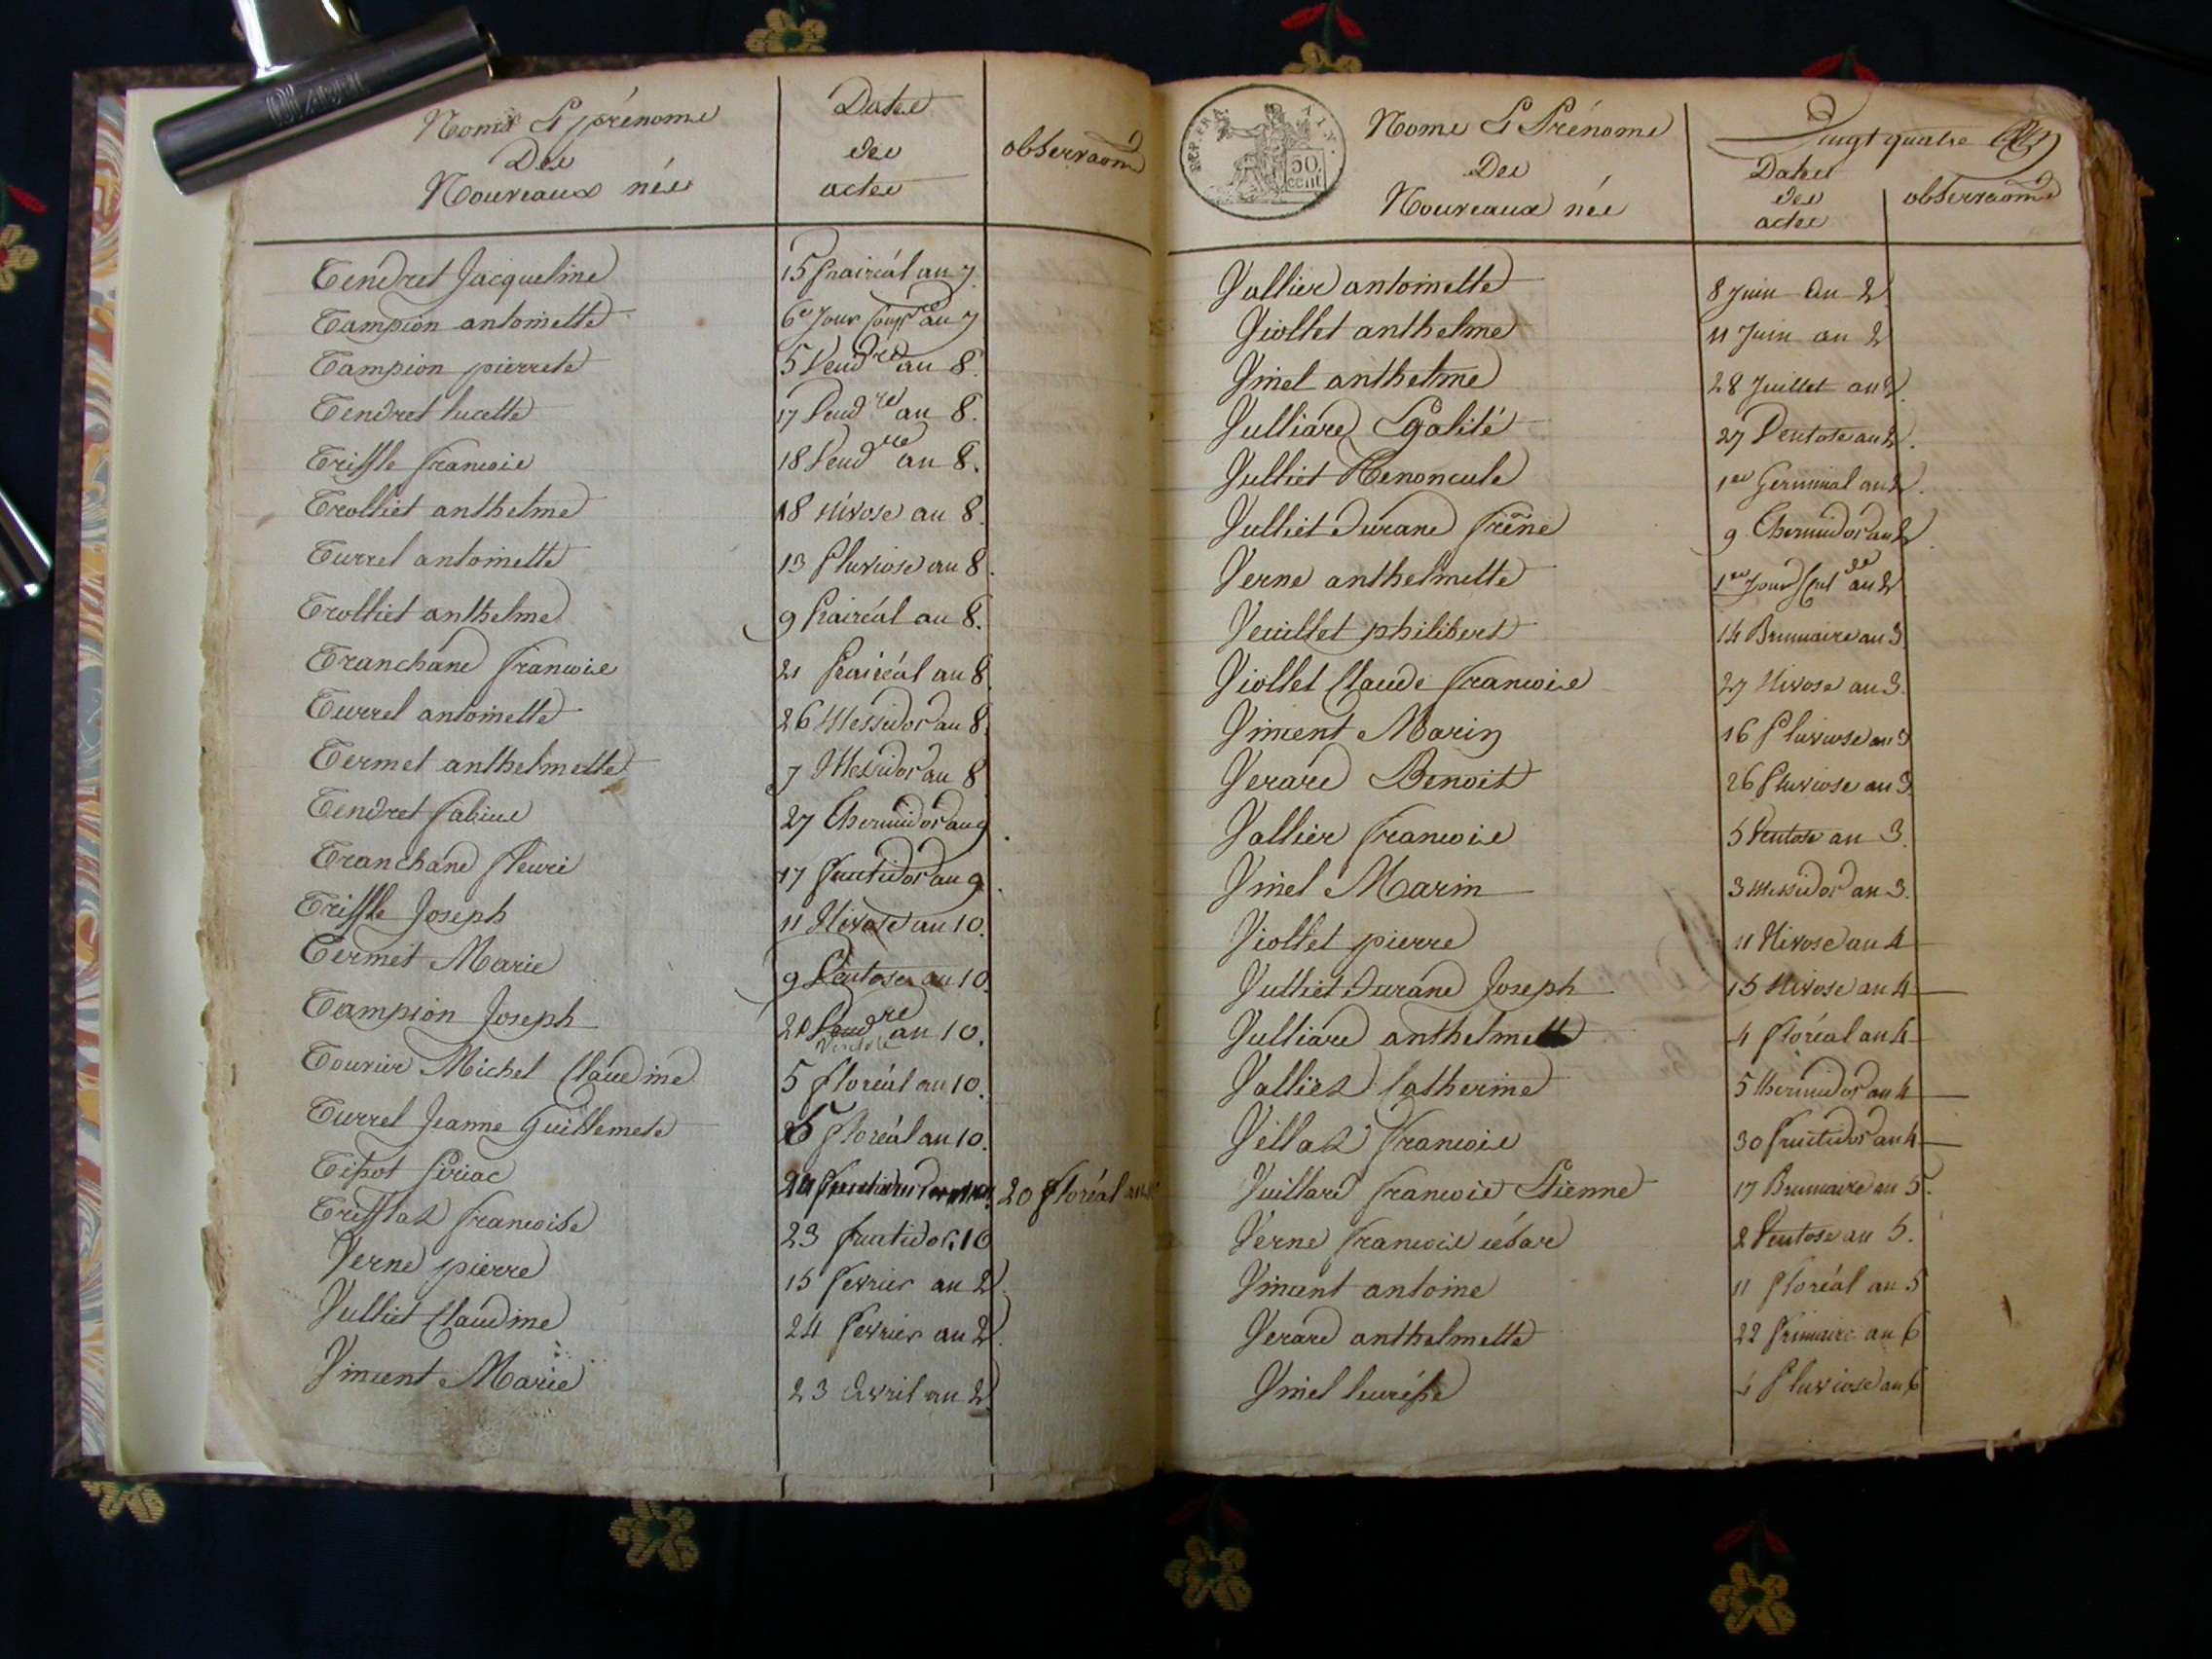 Noms Et prénoms
Des
Nouveaux nés
Dates
des
actes
observaons
Tendret Jacqueline 15 Prairéal an 7
Tampion antoinette 6e Jour Compre an 7
Tampion pierrete 5 Vendre an 8.
Tendret lucette 17 Vendre an 8.
Triffle francois 18 Vendre an 8.
Trolliet anthelme 18 Nivose an 8.
Turrel antoinette 13 Pluviose an 8.
Trolliet anthelme 9 Prairéal an 8.
Tranchand francois 21 Prairéal an 8.
Turrel antoinette 26 Messidor an 8.
Termet anthelmette 7 Messidor an 8
Tendret 27 Thermidor an 9.
Tranchand fleuri 17 fructidor an 9.
Triffle Joseph 11 Nivose an 10.
Termet Marie 9 Ventose an 10.
Tampion Joseph Vendre an 10.
Ventose
Touvier Michel Claudine 5 floréal an 10.
Turrel Jeanne Guillemete floréal an 10.
Tissot Ciriac 20 floréal an
Trifflaz francoise 23 fructidor 10
Verne pierre 15 fevrier an 2.
Vulliet Claudine 24 fevrier an 2.
Vincent Marie 23 Avril an 2
REP. FRA.
50
cent
Noms Et Prénoms
Des
Nouveaux nés
Vingt quatre
Dates
des
actes
observaons
Vallier antoinette 8 Juin an 2
Viollet anthelme 11 Juin an 2
Vinel anthelme 28 Juillet an 2.
Vulliard Egalité 27 Ventose an 2.
Vulliet Renoncule 1er Germinal an 2.
Vulliet Durand frêne 9 Thermidor an 2.
Verne anthelmette 1er Jour an 2
Veuillet philibert 14 Brumaire an 3.
Viollet Claude francois 27 Nivose an 3.
Vincent Marin 16 Pluviose an 3
Verard Benoit 26 Pluviose an 3.
Vallier francois 5 Ventose an 3.
Vinel Marin 3 Messidor an 3.
Viollet pierre 11 Nivose an 4
Vulliet Durand Joseph 15 Nivose an 4
Vulliard anthelmette 4 floréal an 4
Vallier Catherine 5 thermidor an 4
Villaz francois 30 fructidor an 4
Vuillard francois Etienne 17 Brumaire an 5.
Verne francois 2 Ventose an 5.
Vincent antoine 11 floréal an 5
Verard anthelmette 22 frimaire an 6
Vinel Pluviose an 6